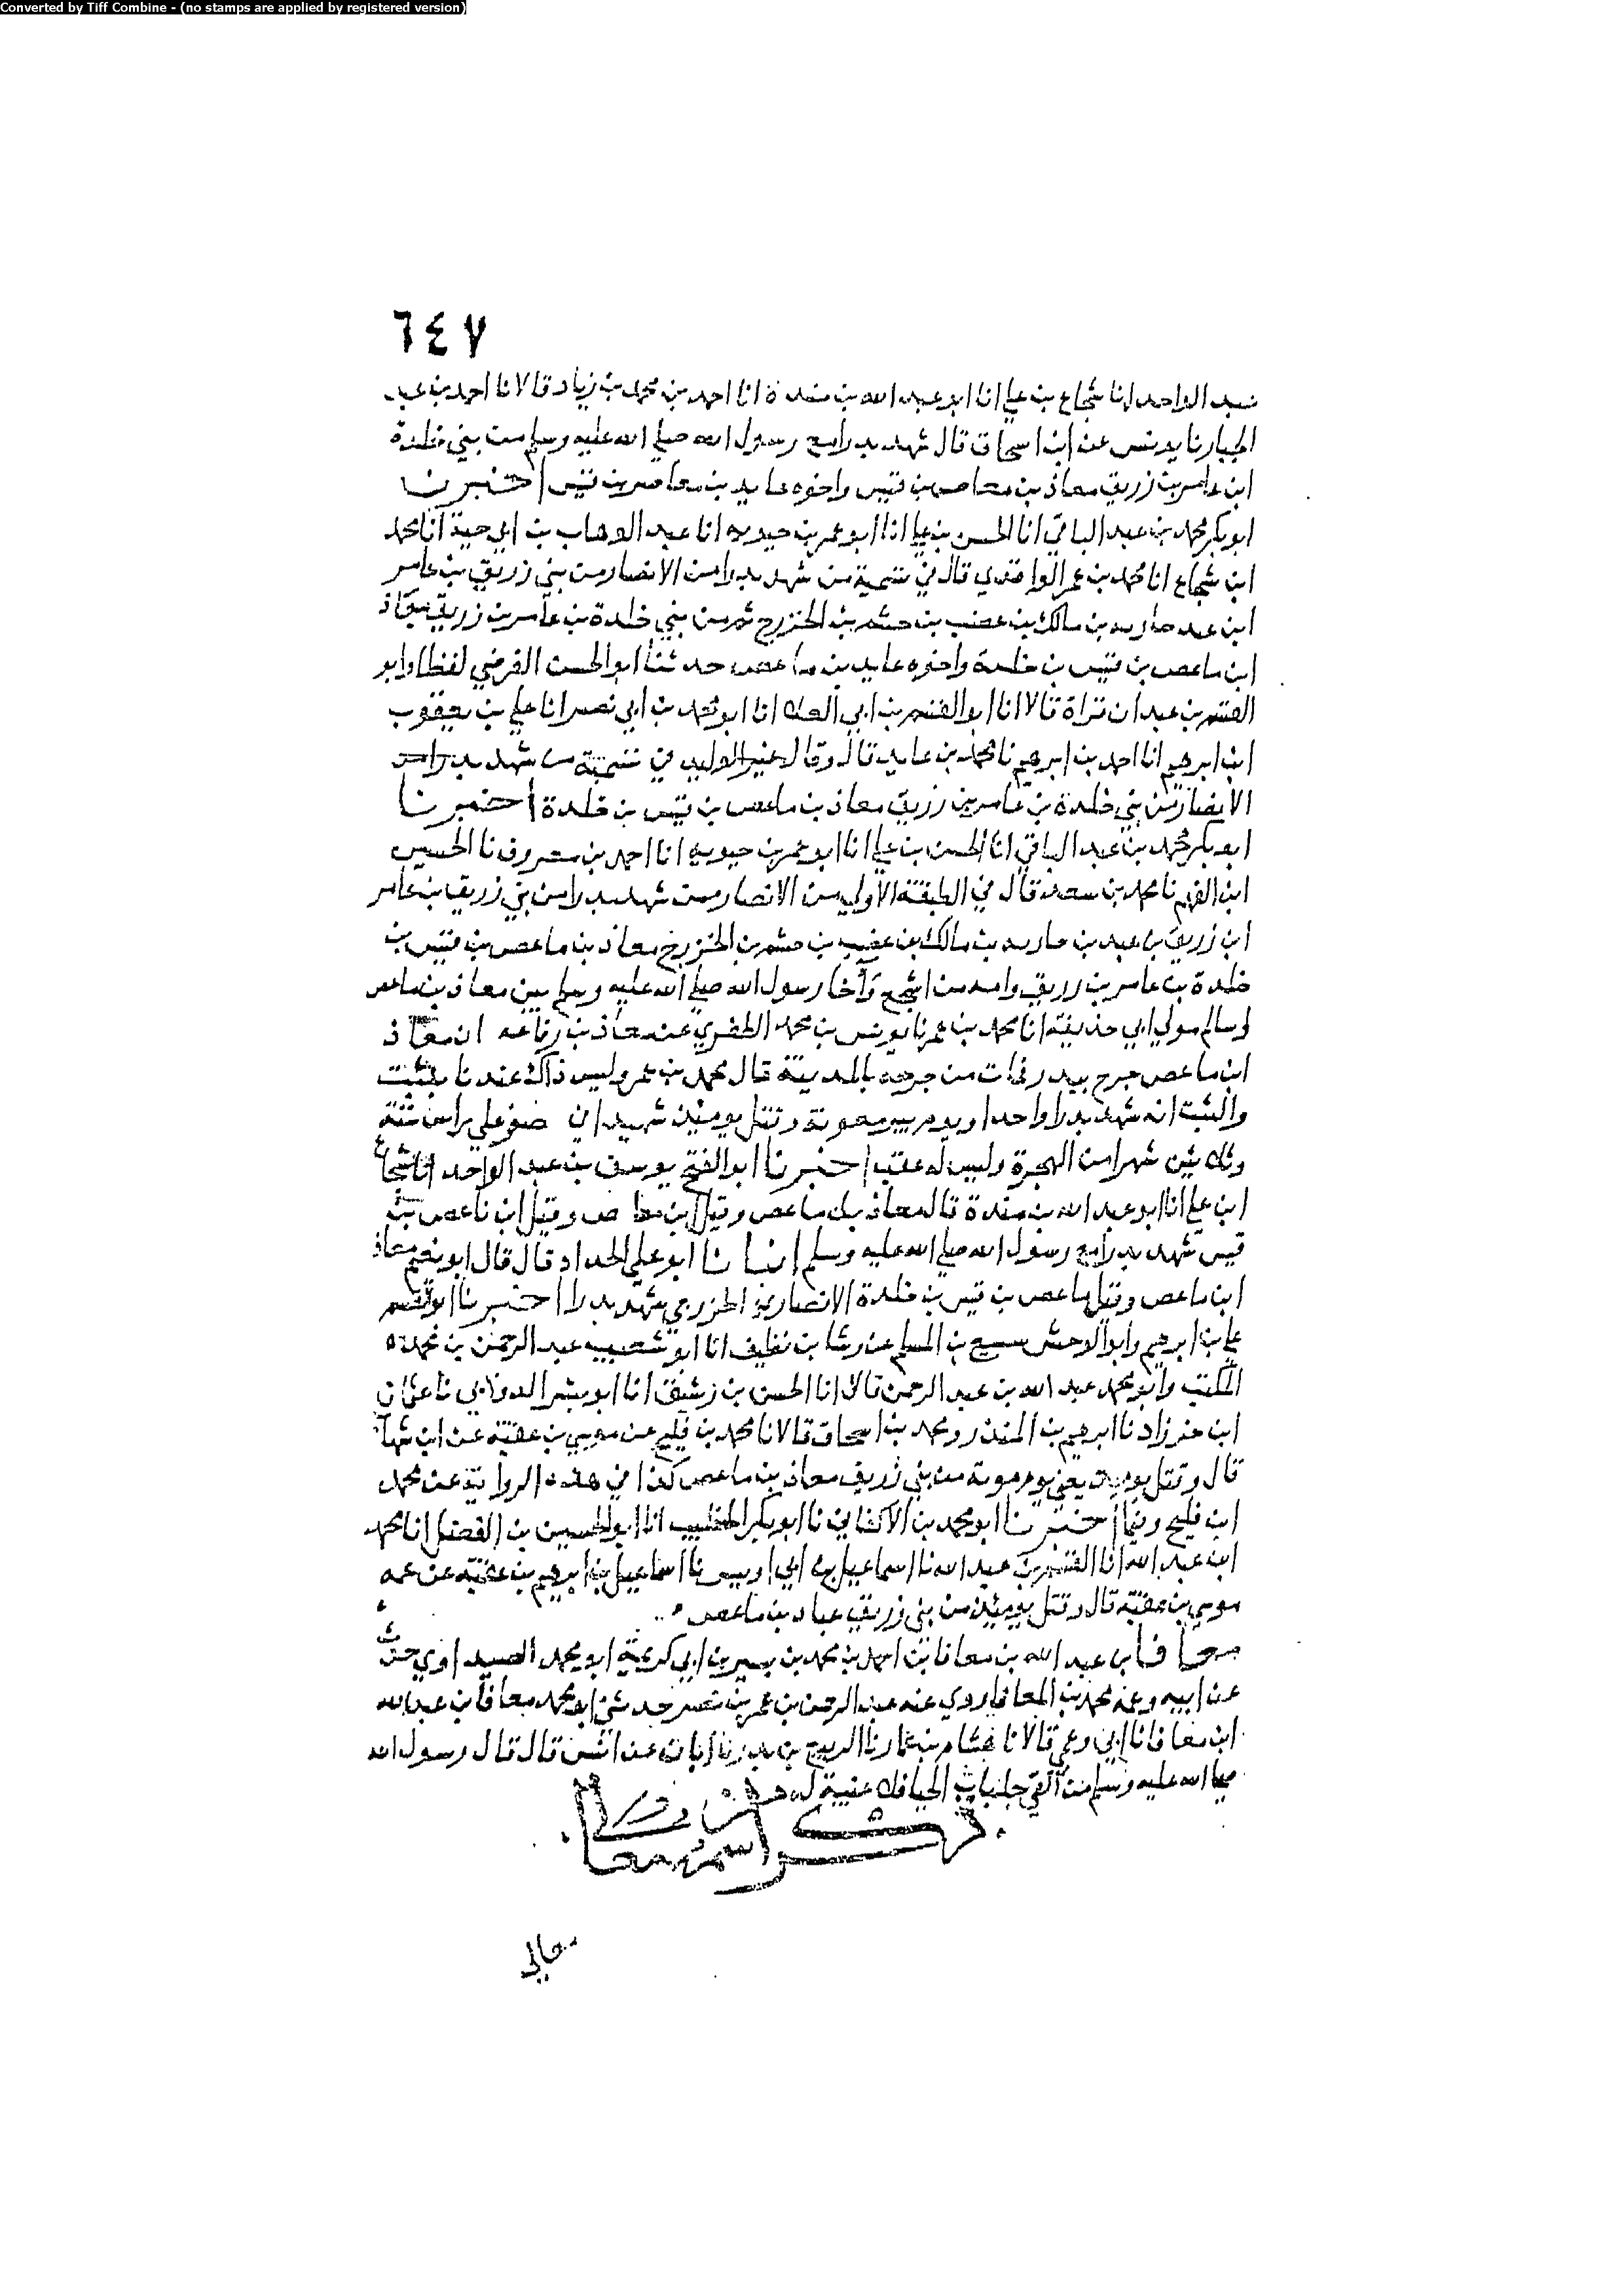 Converted by Tiff Combine - (no stamps are applied by registered version)
٦٤٧
عبد الواحد انا شجاع بن علي انا ابو عبد الله بن مندة انا احمد بن محمد بن زياد قالا نا احمد بن عبد
الجبار نا يونس عن ابن اسحاق قال شهد بدرا مع رسول الله صلي الله عليه وسلم من بني خلدة
ابن عامر بن زريق معاذ بن معاصر بن قيس واخوه عايد بن معاصر بن قيس اخبرنا
ابو بكر محمد بن عبد الباقي انا الحسن بن علي انا ابو عمر بن حيويه انا عبد الوهاب بن ابي حية انا محمد
ابن شجاع انا محمد بن عمر الواقدي قال في تسمية من شهد بدرا من الانصار من بني زريق بن عامر
ابن عبد حارثه بن مالك بن غضب بن جشم بن الخزرج ثم من بني خلدة بن عامر بن زريق معاذ
ابن ماعص بن قيس بن خلدة واخوه عايد بن ماعص حدثنا ابو الحسن الفرضي لفظا وابو
القسم بن عبدان قراة قالا انا ابو القسم بن ابي العلا انا ابو محمد بن ابي نصر انا علي بن يعقوب
ابن ابرهيم انا احمد بن ابرهيم نا محمد بن عايد قال وقال غير الوليد في تسمية من شهد بدرا من
الانصار من بني خلدة بن عامر بن زريق معاذ بن ماعص بن قيس بن خلدة اخبرنا
ابو بكر محمد بن عبد الباقي انا الحسن بن علي انا ابو عمر بن حيويه انا احمد بن معروف نا الحسين
ابن الفهم نا محمد بن سعد قال في الطبقة الاولي من الانصار من شهد بدرا من بني زريق بن عامر
ابن زريق بن عبد بن حارثه بن مالك بن غضب بن جشم بن الخزرج معاذ بن ماعص بن قيس بن
خلدة بن عامر بن زريق وامه من اشجع وآخا رسول الله صلي الله عليه وسلم بين معاذ بن ماعص
وسالم مولي ابي حذيفة انا محمد بن عمر نا يونس بن محمد الظفري عن معاذ بن رفاعه ان معاذ
ابن ماعص جرح ببدر فمات من جرحه بالمدينة قال محمد بن عمر وليس ذاك عندنا بثبت
والثبت انه شهد بدرا واحدا ويوم بير معونة وقتل يوميذ شهيدا في صفر علي راس ستة
وثلاثين شهرا من الهجرة وليس له عقب اخبرنا ابو الفتح يوسف بن عبد الواحد انا شجاع
ابن علي انا ابو عبد الله بن مندة قال معاذ بن ماعص وقيل ابن معاص وقيل ابن ناعص بن
قيس شهد بدرا مع رسول الله صلي الله عليه وسلم انبانا ابو علي الحداد قال قال ابو نعيم معاذ
ابن ماعص وقيل ماعص بن قيس بن خلدة الانصاري الخزرجي شهد بدرا اخبرنا ابو القسم
علي بن ابرهيم وابو الوحش سبيع بن المسلم عن رشا بن نظيف انا ابو شعيب عبد الرحمن بن محمد
المكتب وابو محمد عبد الله بن عبد الرحمن قالا انا الحسن بن رشيق انا ابو بشر الدولابي نا عثمان
ابن خرزاد نا ابرهيم بن المنذر ومحمد بن اسحاق قالا نا محمد بن فليح عن موسي بن عقبة عن ابن شهاب
قال وقتل يوميذ يعني يوم مونة من بني زريق معاذ بن ماعص كذا في هذه الرواية عن محمد
ابن فليح وفيما اخبرنا ابو محمد بن الاكفاني نا ابو بكر الخطيب انا ابو الحسين بن الفضل انا محمد
ابن عبد الله انا القسم بن عبد الله نا اسماعيل بن ابي اويس نا اسماعيل بن ابرهيم بن عقبة عن عمه
موسي بن عقبة قال وقتل يوميذ من بني زريق عباد بن ماعص
معافا بن عبد الله بن معافا بن احمد بن محمد بن بشير بن ابي كريمة ابو محمد الصيداوي حدث
عن ابيه وعمه محمد بن المعافا روي عنه عبد الرحمن بن عمر بن نصر حدثني ابو محمد معافا بن عبد الله
ابن معافا نا ابي وعمي قالا نا هشام بن عمار نا الربيع بن بدر نا ابان عن انس قال قال رسول الله
صلي الله عليه وسلم من القي جلباب الحيا فلا غيبة له
ذكر من اسمه معالي
معالي